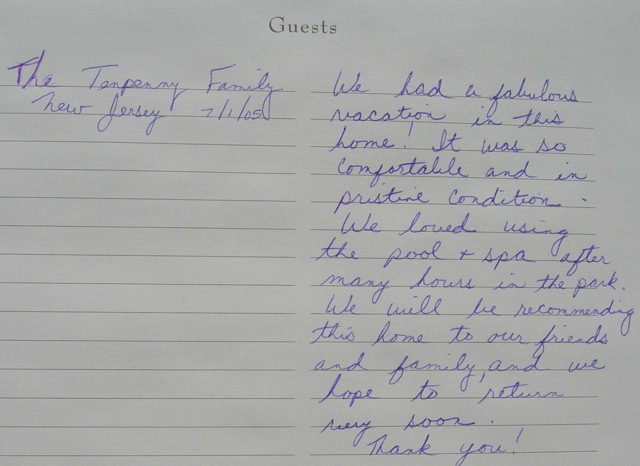 Guests
The Tenpenny Family
New Jersey 7/1/05
We had a fabulous
vacation in this
home! It was so
comfortable and in
pristine condition.
We loved using
the pool + spa after
many hours in the park.
We will be recommending
this home to our friends
and family, and we
hope to return
very soon.
Thank you!